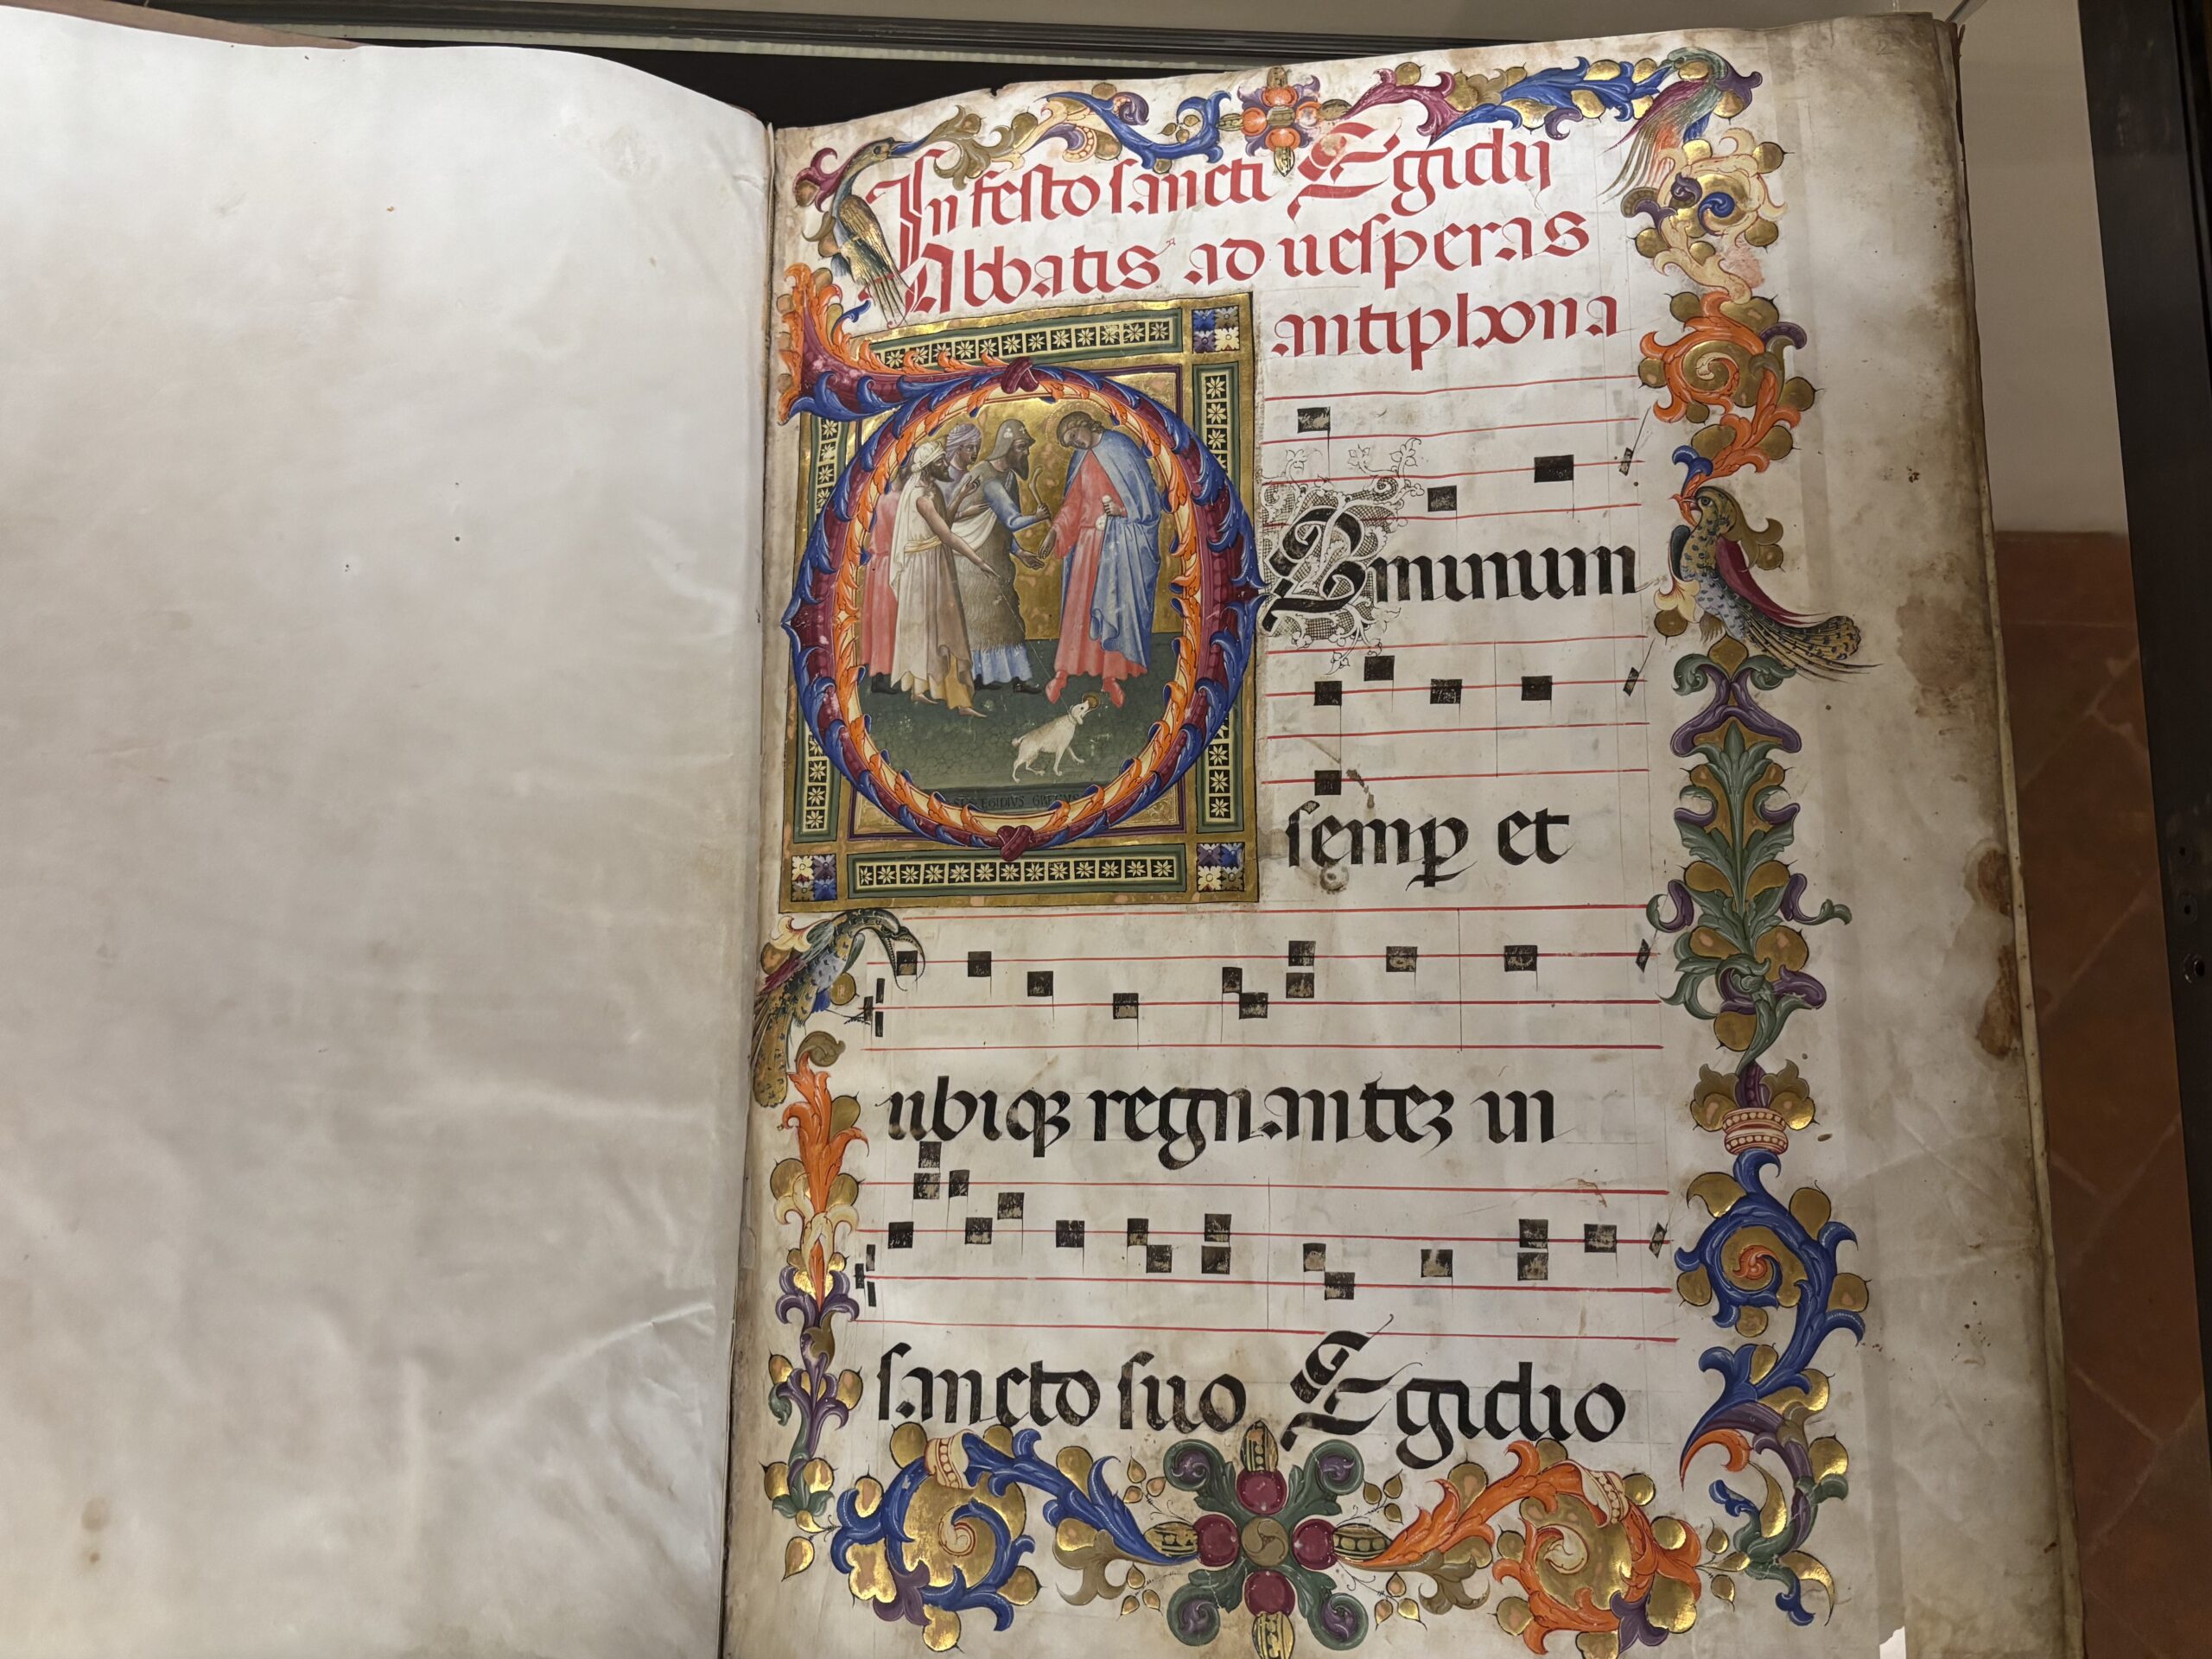 In festo sancti Egidij
Abbatis ad uesperas
antiphona
DOminum
semp et
ubiqz regnantez in
sancto suo Egidio
EGIDIVS